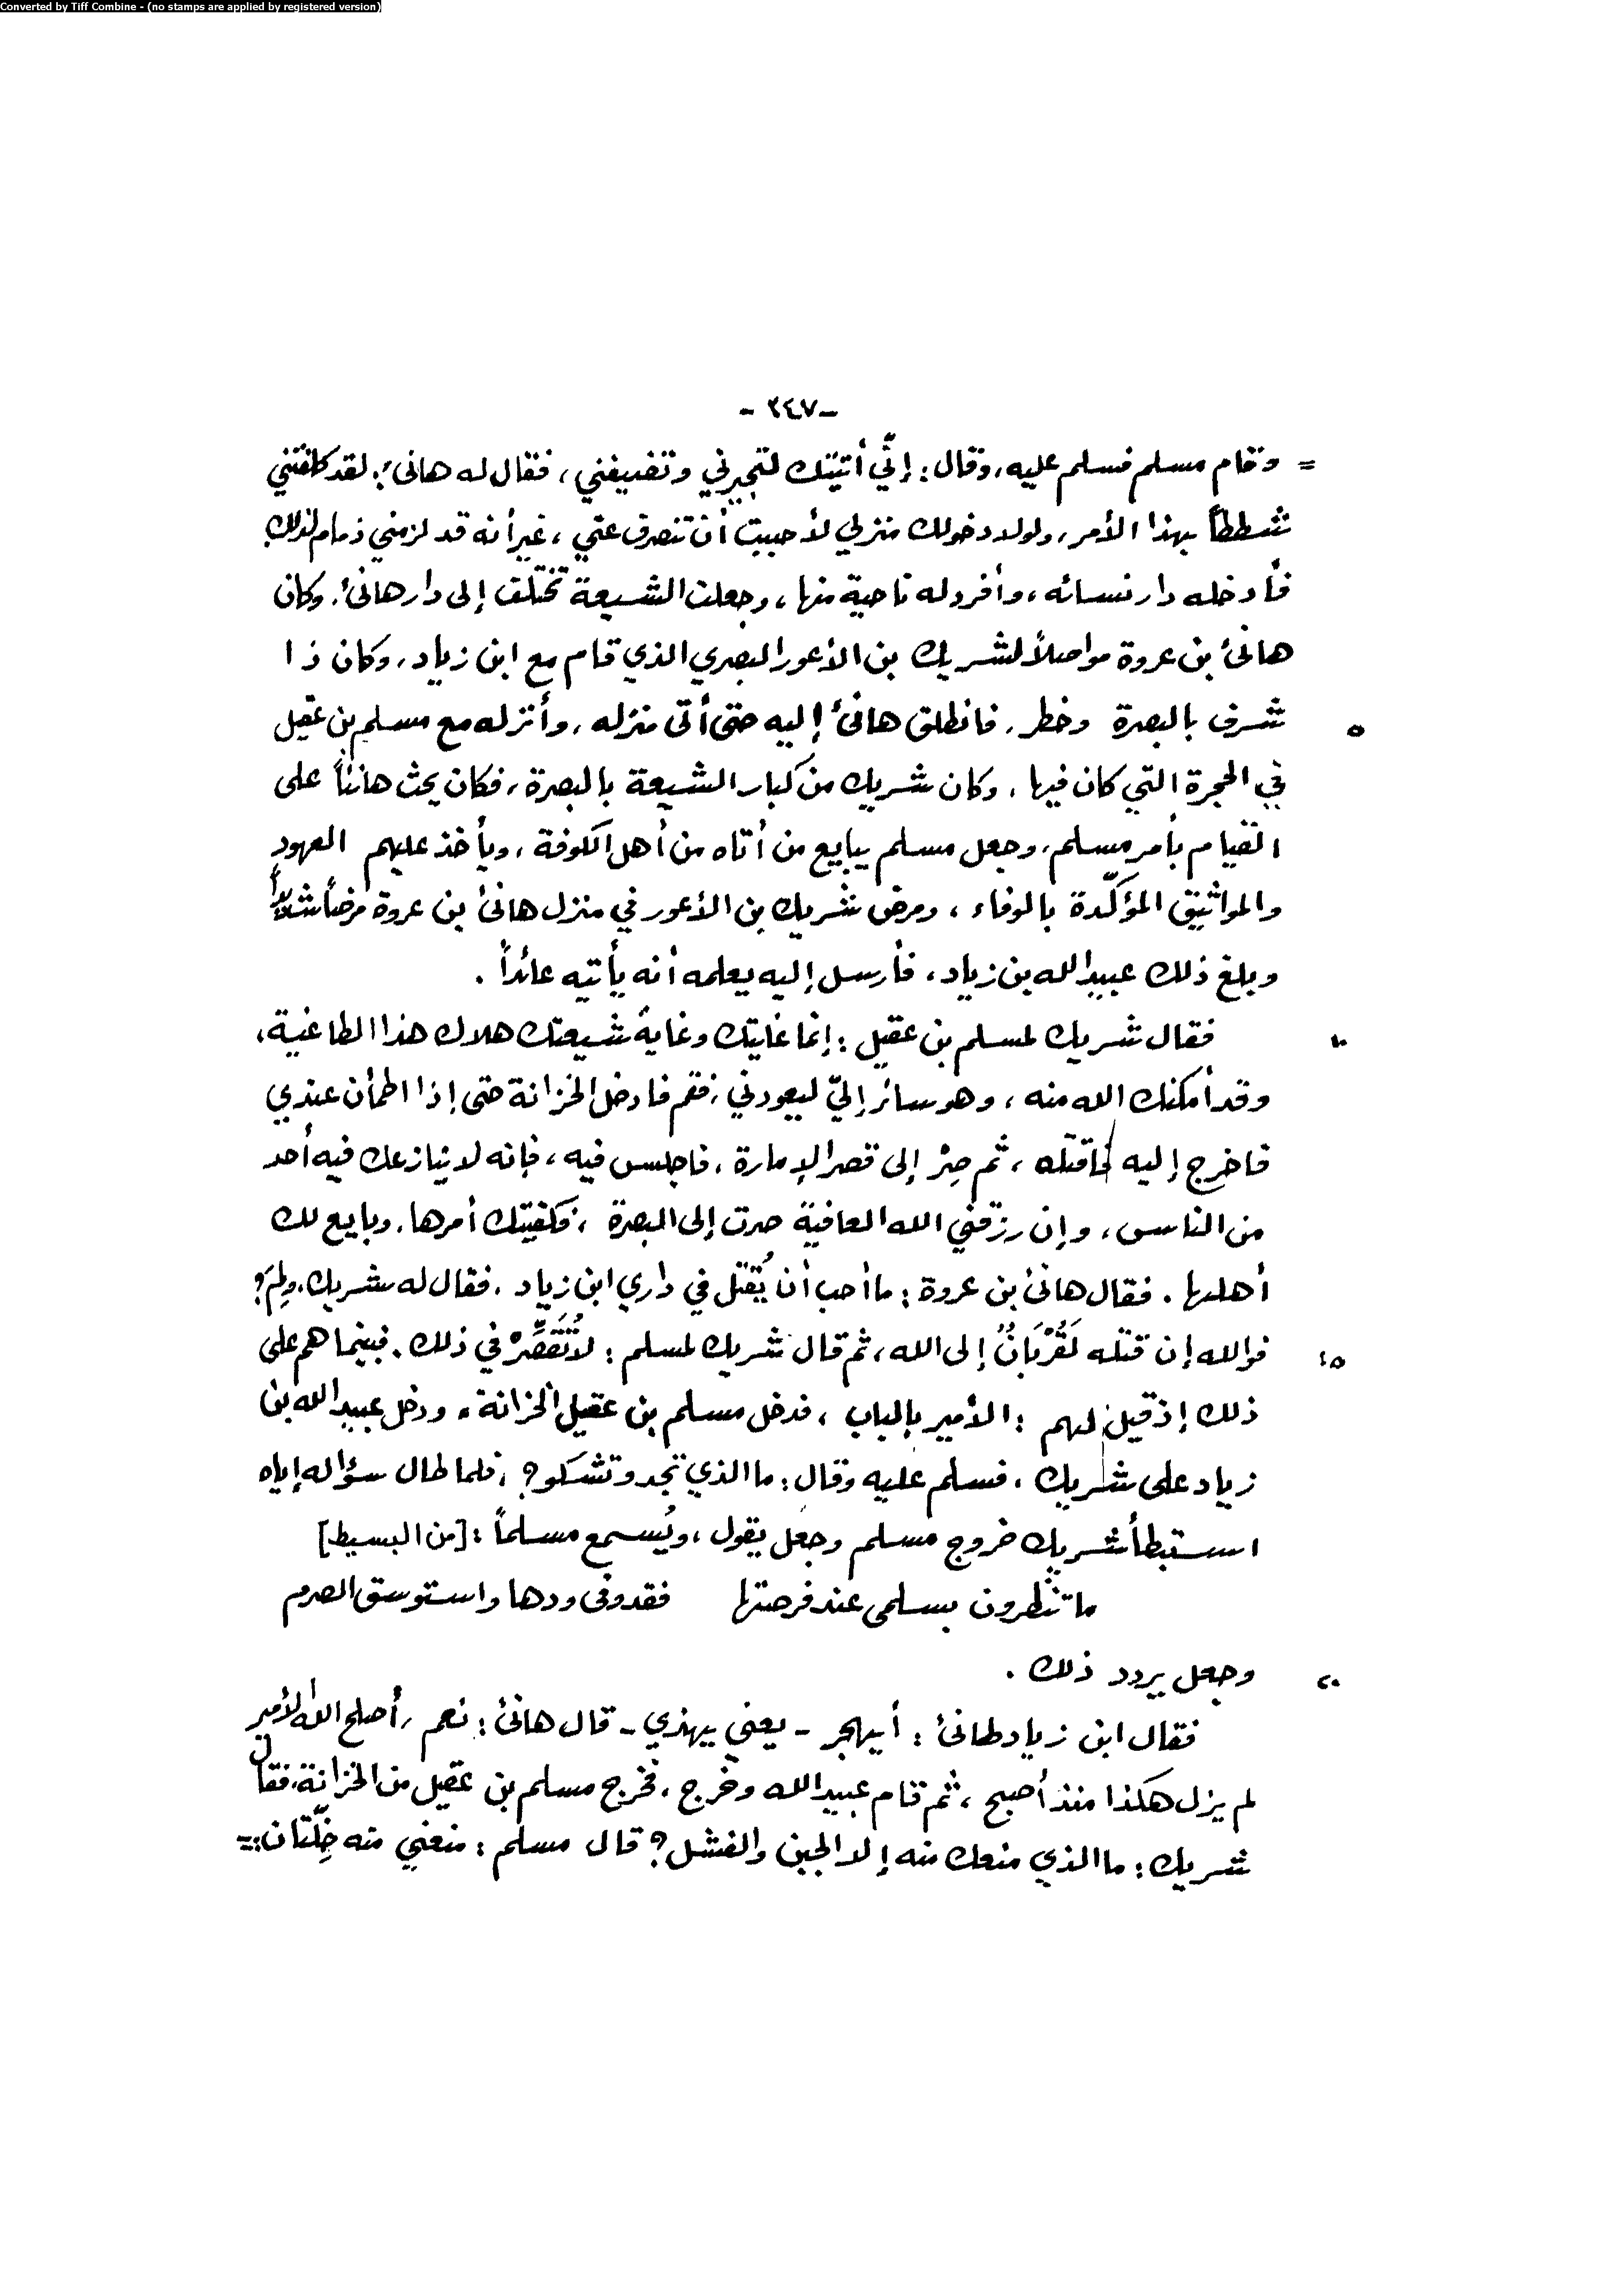 Converted by Tiff Combine - (no stamps are applied by registered version)
- ٢٤٧ -
= وقام مسلم فسلم عليه، وقال: إنّي أتيتك لتجيرني وتضيفني، فقال له هانئ: لقد كلفتني
شططاً بهذا الأمر، ولولا دخولك منزلي لأحببت أن تنصرف عني، غير أنه قد لزمني ذمام لذلك.
فأدخله دار نسائه، وأفرد له ناحية منها، وجعلت الشيعة تختلف إلى دار هانئ. وكان
هانئ بن عروة مواصلاً لشريك بن الأعور البصري الذي قام مع ابن زياد، وكان ذا
٥ شرف بالبصرة وخطر، فانطلق هانئ إليه حتى أتى منزله، وأنزله مع مسلم بن عقيل
في الحجرة التي كان فيها، وكان شريك من كبار الشيعة بالبصرة، فكان يحث هانئاً على
القيام بأمر مسلم، وجعل مسلم يبايع من أتاه من أهل الكوفة، ويأخذ عليهم العهود
والمواثيق المؤكّدة بالوفاء، ومرض شريك بن الأعور في منزل هانئ بن عروة مرضاً شديداً
وبلغ ذلك عبيد الله بن زياد، فأرسل إليه يعلمه أنه يأتيه عائداً.
١٠ فقال شريك لمسلم بن عقيل: إنما غايتك وغاية شيعتك هلاك هذا الطاغية،
وقد أمكنك الله منه، وهو سائر إليّ ليعودني، فقم فادخل الخزانة حتى إذا اطمأن عندي
فاخرج إليه فاقتله، ثم صِرْ إلى قصر الإمارة، فاجلس فيه، فإنه لا ينازعك فيه أحد
من الناس، وإن رزقني الله العافية صرت إلى البصرة، فكفيتك أمرها، وبايع لك
أهلها. فقال هانئ بن عروة: ما أحب أن يُقتل في داري ابن زياد. فقال له شريك، ولِمَ؟
١٥ فوالله إن قتله لَقُرْبَانٌ إلى الله، ثم قال شريك لمسلم: لا تُقَصِّرْ في ذلك. فبينما هم على
ذلك إذ قيل لهم: الأمير بالباب، فدخل مسلم بن عقيل الخزانة، ودخل عبيد الله بن
زياد على شريك، فسلم عليه وقال: ما الذي تجد وتشكو؟، فلما طال سؤاله إياه
استبطأ شريك خروج مسلم وجعل يقول، ويُسمع مسلماً: [من البسيط]
ما تنظرون بسلمى عند فرصتها فقد وفى ودها واستوسق الصرم
٢٠ وجعل يردد ذلك.
فقال ابن زياد لهانئ: أيهجر - يعني يهذي - قال هانئ: نعم، أصلح الله الأمير
لم يزل هكذا منذ أصبح، ثم قام عبيد الله وخرج، فخرج مسلم بن عقيل من الخزانة، فقال
شريك: ما الذي منعك منه إلا الجبن والفشل؟ قال مسلم: منعني منه خِلّتان: =